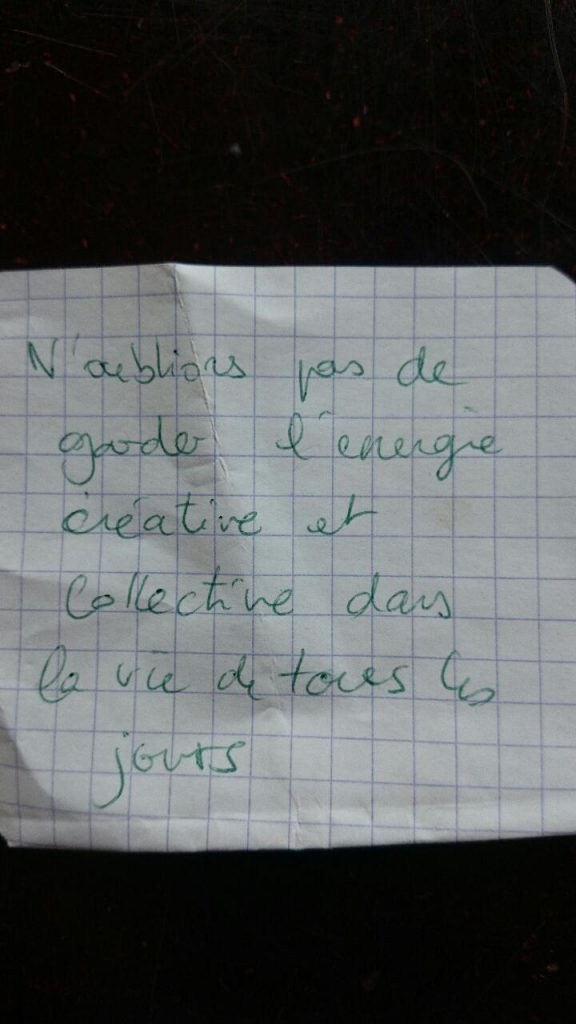 N'oublions pas de
garder l'énergie
créative et
collective dans
la vie de tous les
jours